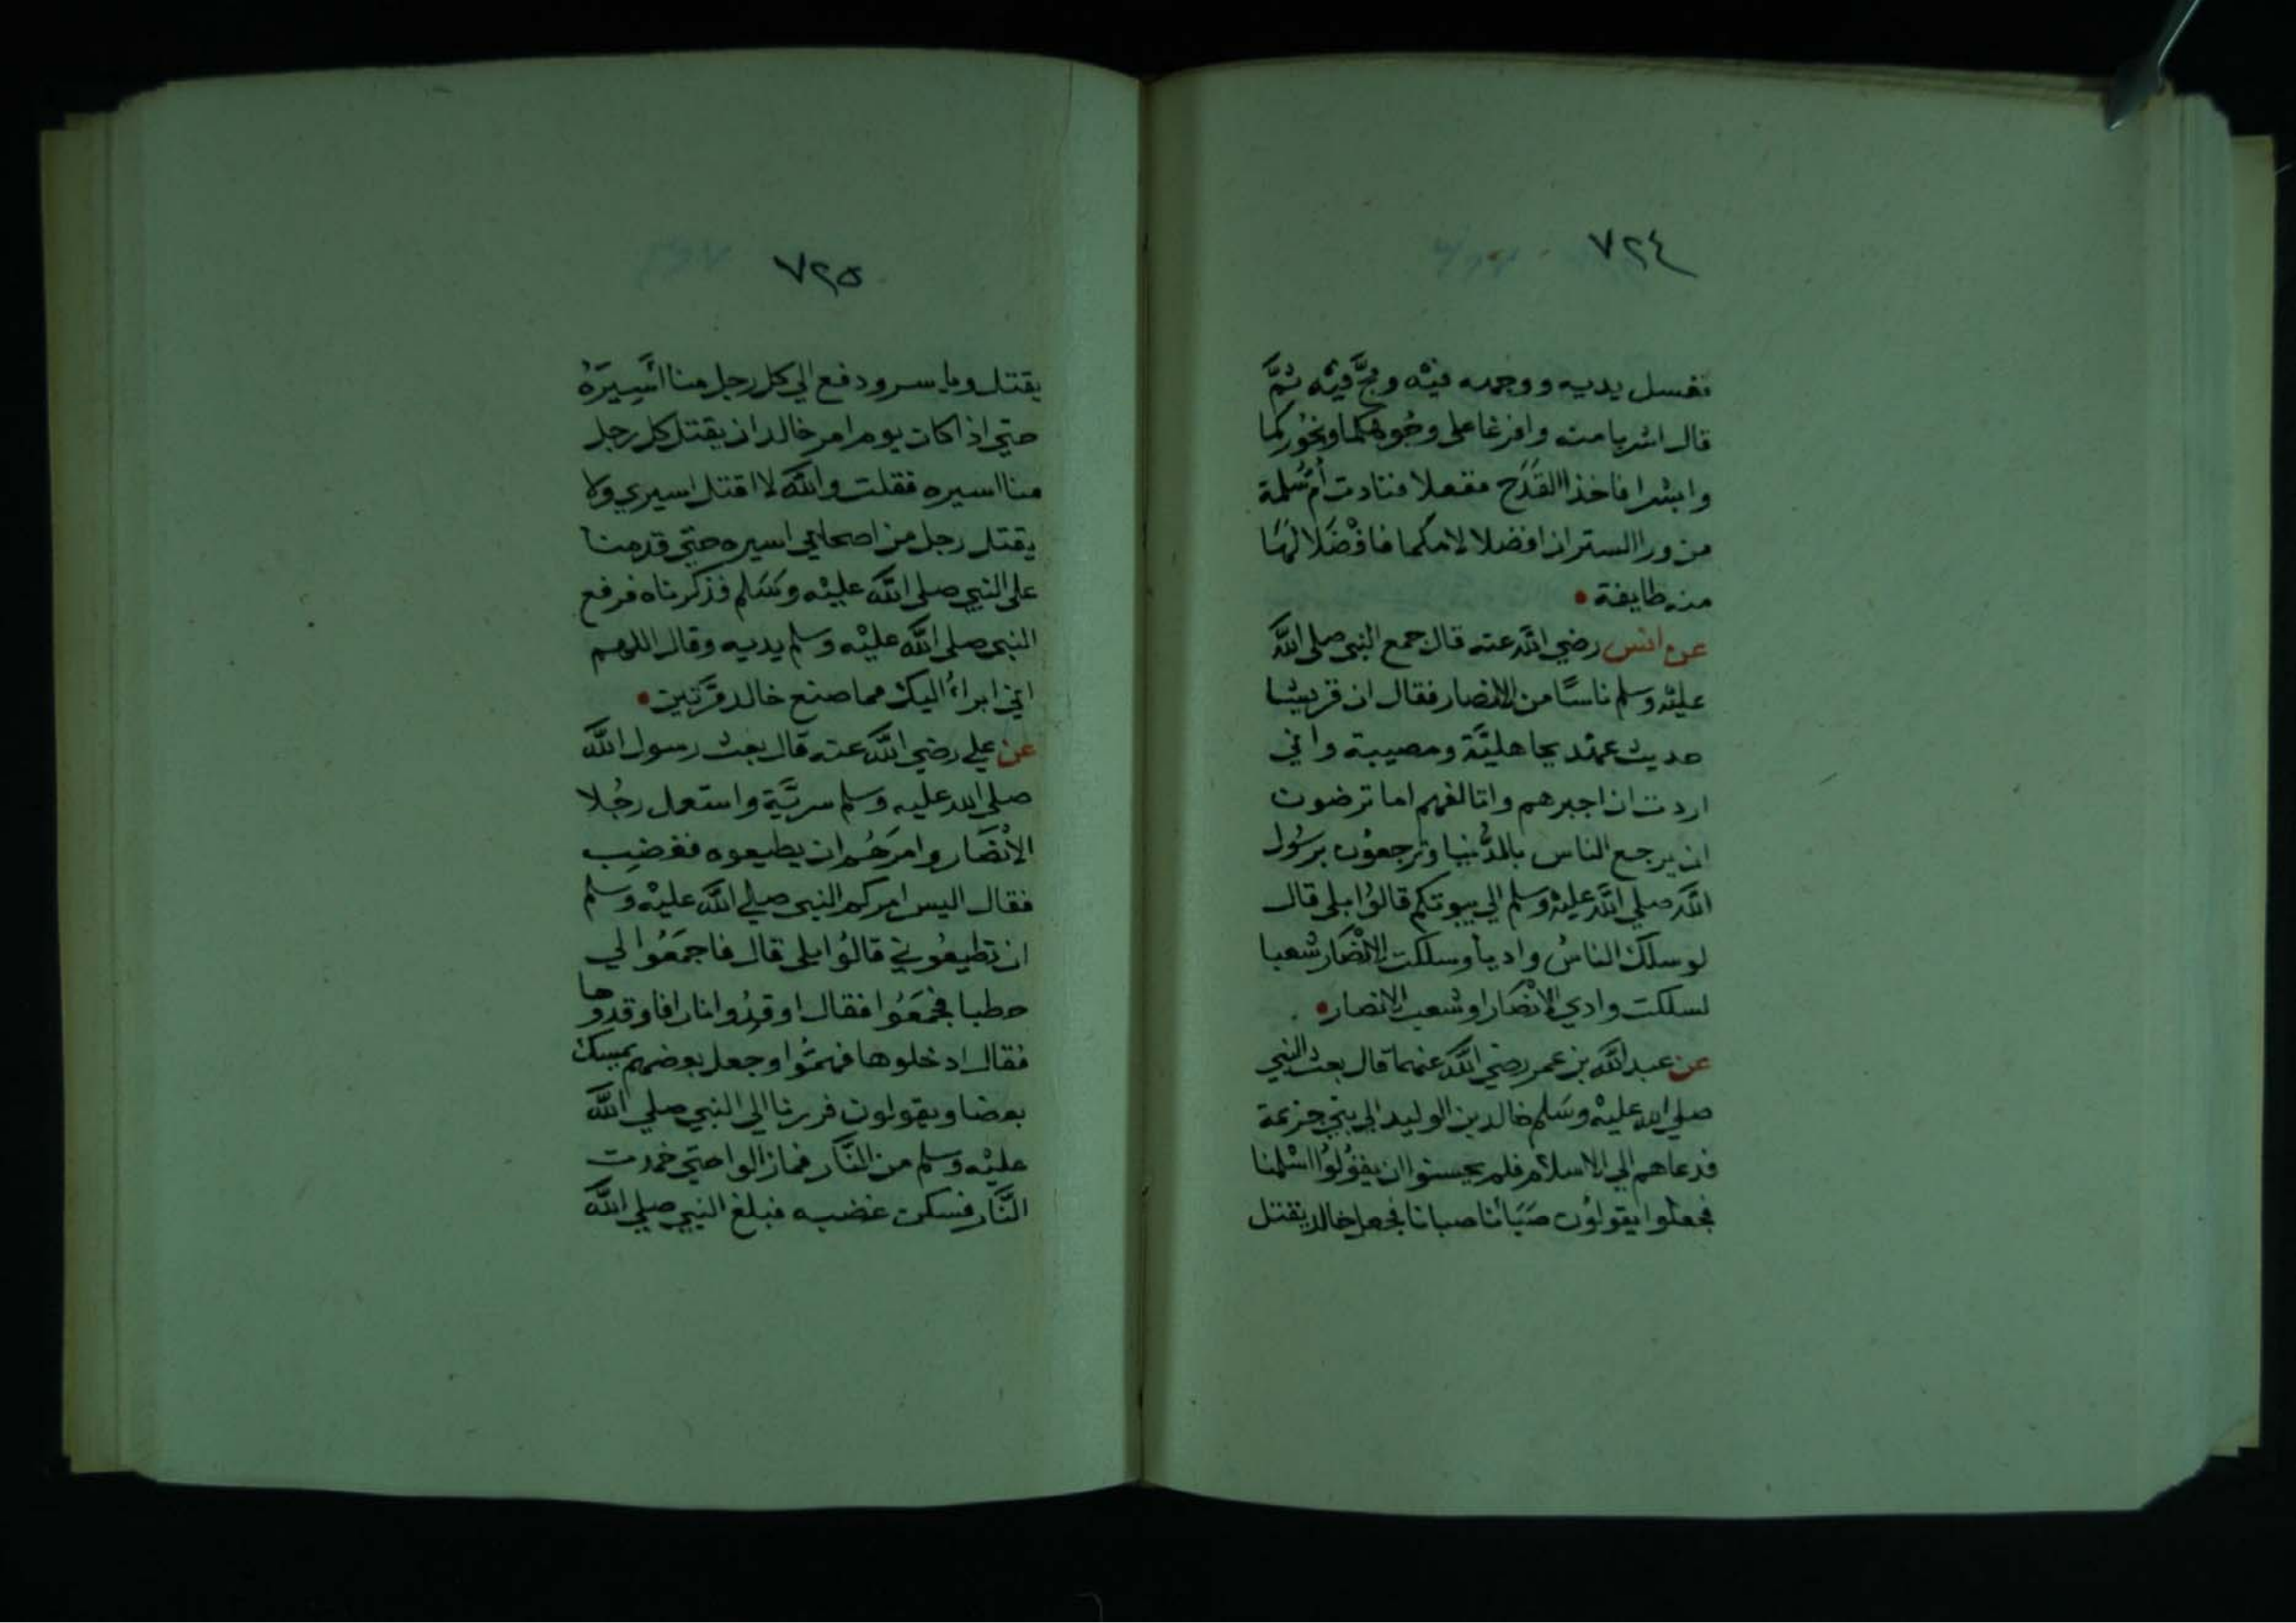 ٧٢٤
فغسل يديه ووجهه فيْه ومجَّ فيْه ثمَّ
قال اشربا منه وافرغا على وجُوهكما ونحُوركما
وابشرا فاخذا القَدَح ففعلا فنادت أم سَلمة
من ورا الستر ان افضلا لامكما فافْضَلا لهَا
منه طايفة
عن انس رضي الله عنه قال جمع النبي صلى اللَّه
عليْه وسلم ناسًا من الانصار فقال ان قريشا
حديث عهد بجاهليَّة ومصيبة واني
اردت ان اجبرهم واتالفهم اما ترضون
ان يرجع الناس بالدُّنيا وترجعوُن برسُول
اللَّه صلي اللَّه عليْه وسلم الي بيوتكم قالوُا بلى قال
لو سلك الناسُ واديا وسلكت الانْصَار شعبا
لسلكت وادي الانْصَار او شعب الانصار
عن عبد اللَّه بن عمر رضي اللَّه عنهما قال بعث النبي
صلي الله عليْه وسَلم خالد بن الوليد الي بني جزيمة
فدعاهم الي الاسلام فلم يحسنوا ان يقوُلوُا اسْلمنا
فجعلوا يقولوُن صَبَأنا صبانا فجعل خالد يقتل
٧٢٥
يقتل وياسر ودفع الي كل رجل منا اسَيِرَهُ
حتي اذا كان يوم امر خالد ان يقتل كل رجل
منا اسيره فقلت واللَّه لا اقتل اسيري ولا
يقتل رجل من اصحابي اسيره حتي قدمنا
على النبي صلى اللَّه عليْه وسَلم فذكرناه فرفع
النبي صلى اللَّه عليْه وسلم يديه وقال اللهم
اني ابراءُ اليك مما صنع خالد مَرَّتين
عن علي رضي اللَّه عنه قال بعث رسول اللَّه
صلي الله عليه وسلم سريَّة واستعمل رجُلا
الانْصَار وامرَهُم ان يطيعوه فغضِب
فقال اليس امركم النبي صلي اللَّه عليْه وسلم
ان تطيعُوني قالوُا بلى قال فاجمَعُوا لي
حطبا فجَمَعُوا فقال اوقدُوا نارا فاوقدوها
فقال ادخلوها فهمُّوا وجعل بعضهم يمسك
بعضا ويقولون فررنا الى النبي صلي اللَّه
عليْه وسلم من النَّار فمازالوا حتي خمدت
النَّار فسكن غضبه فبلغ النبي صلي اللَّه